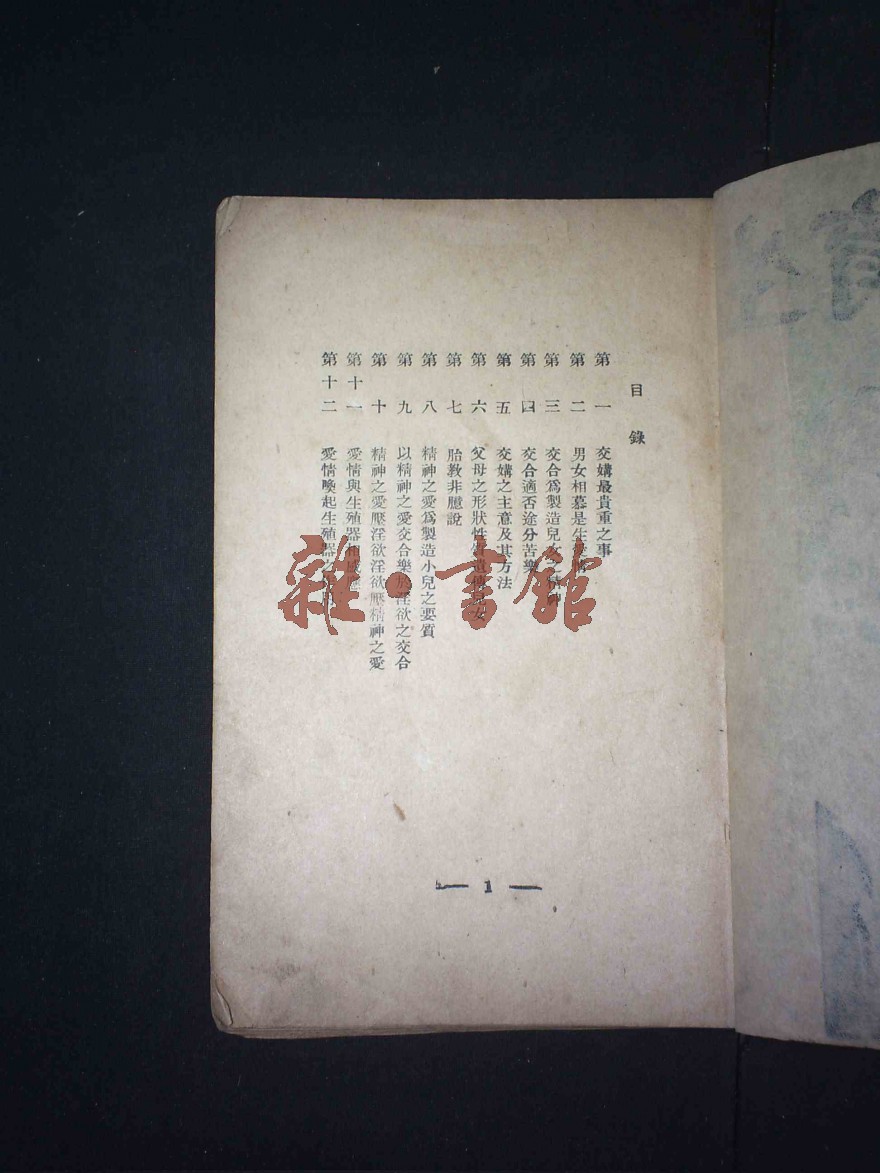 目錄
第一 交媾最貴重之事
第二 男女相慕是生
第三 交合爲製造兒女之精神
第四 交合適否途分苦樂
第五 交媾之主意及其方法
第六 父母之形狀性質遺傳兒女
第七 胎教非臆說
第八 精神之愛爲製造小兒之要質
第九 以精神之愛交合樂於淫欲之交合
第十 精神之愛壓淫欲淫欲壓精神之愛
第十一 愛情與生殖器相感應
第十二 愛情喚起生殖器之
— 1 —
雜·書館